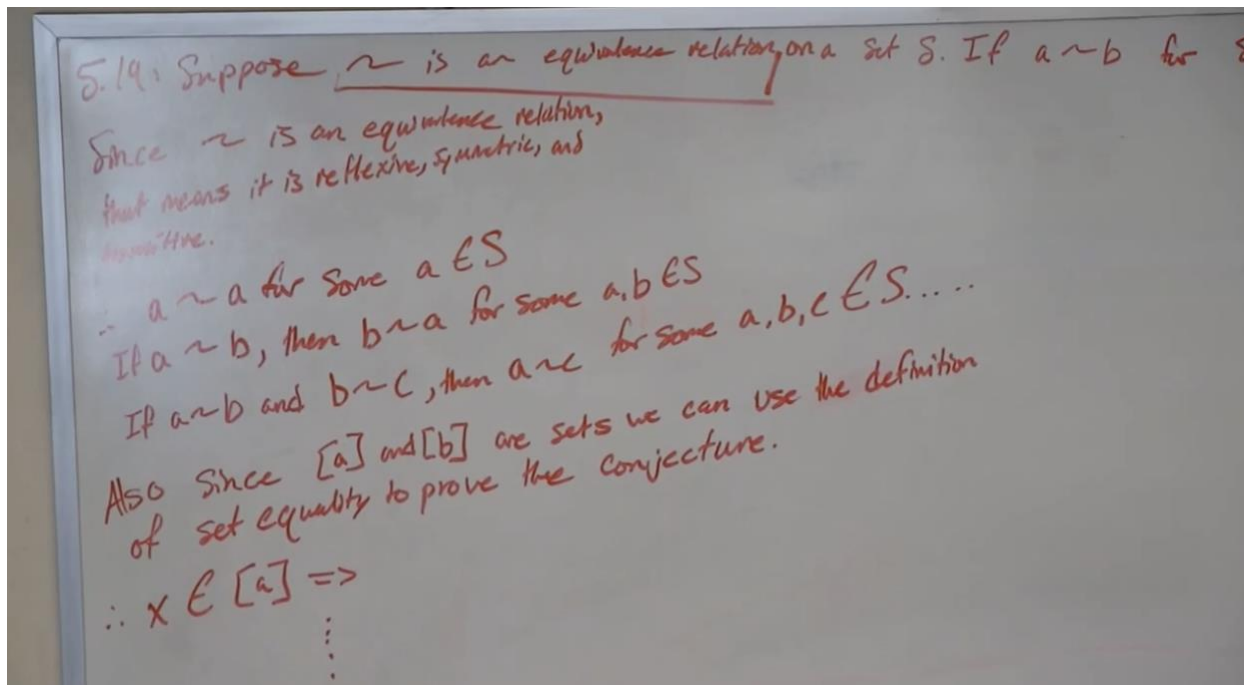 5.19: Suppose ~ is an equivalence relation, on a set S. If a ~ b for
Since ~ is an equivalence relation,
that means it is reflexive, symmetric, and
transitive.
∴ a ~ a for some a ∈ S
If a ~ b, then b ~ a for some a, b ∈ S
If a ~ b and b ~ c, then a ~ c for some a, b, c ∈ S.....
Also since [a] and [b] are sets we can use the definition
of set equality to prove the conjecture.
∴ x ∈ [a] =>